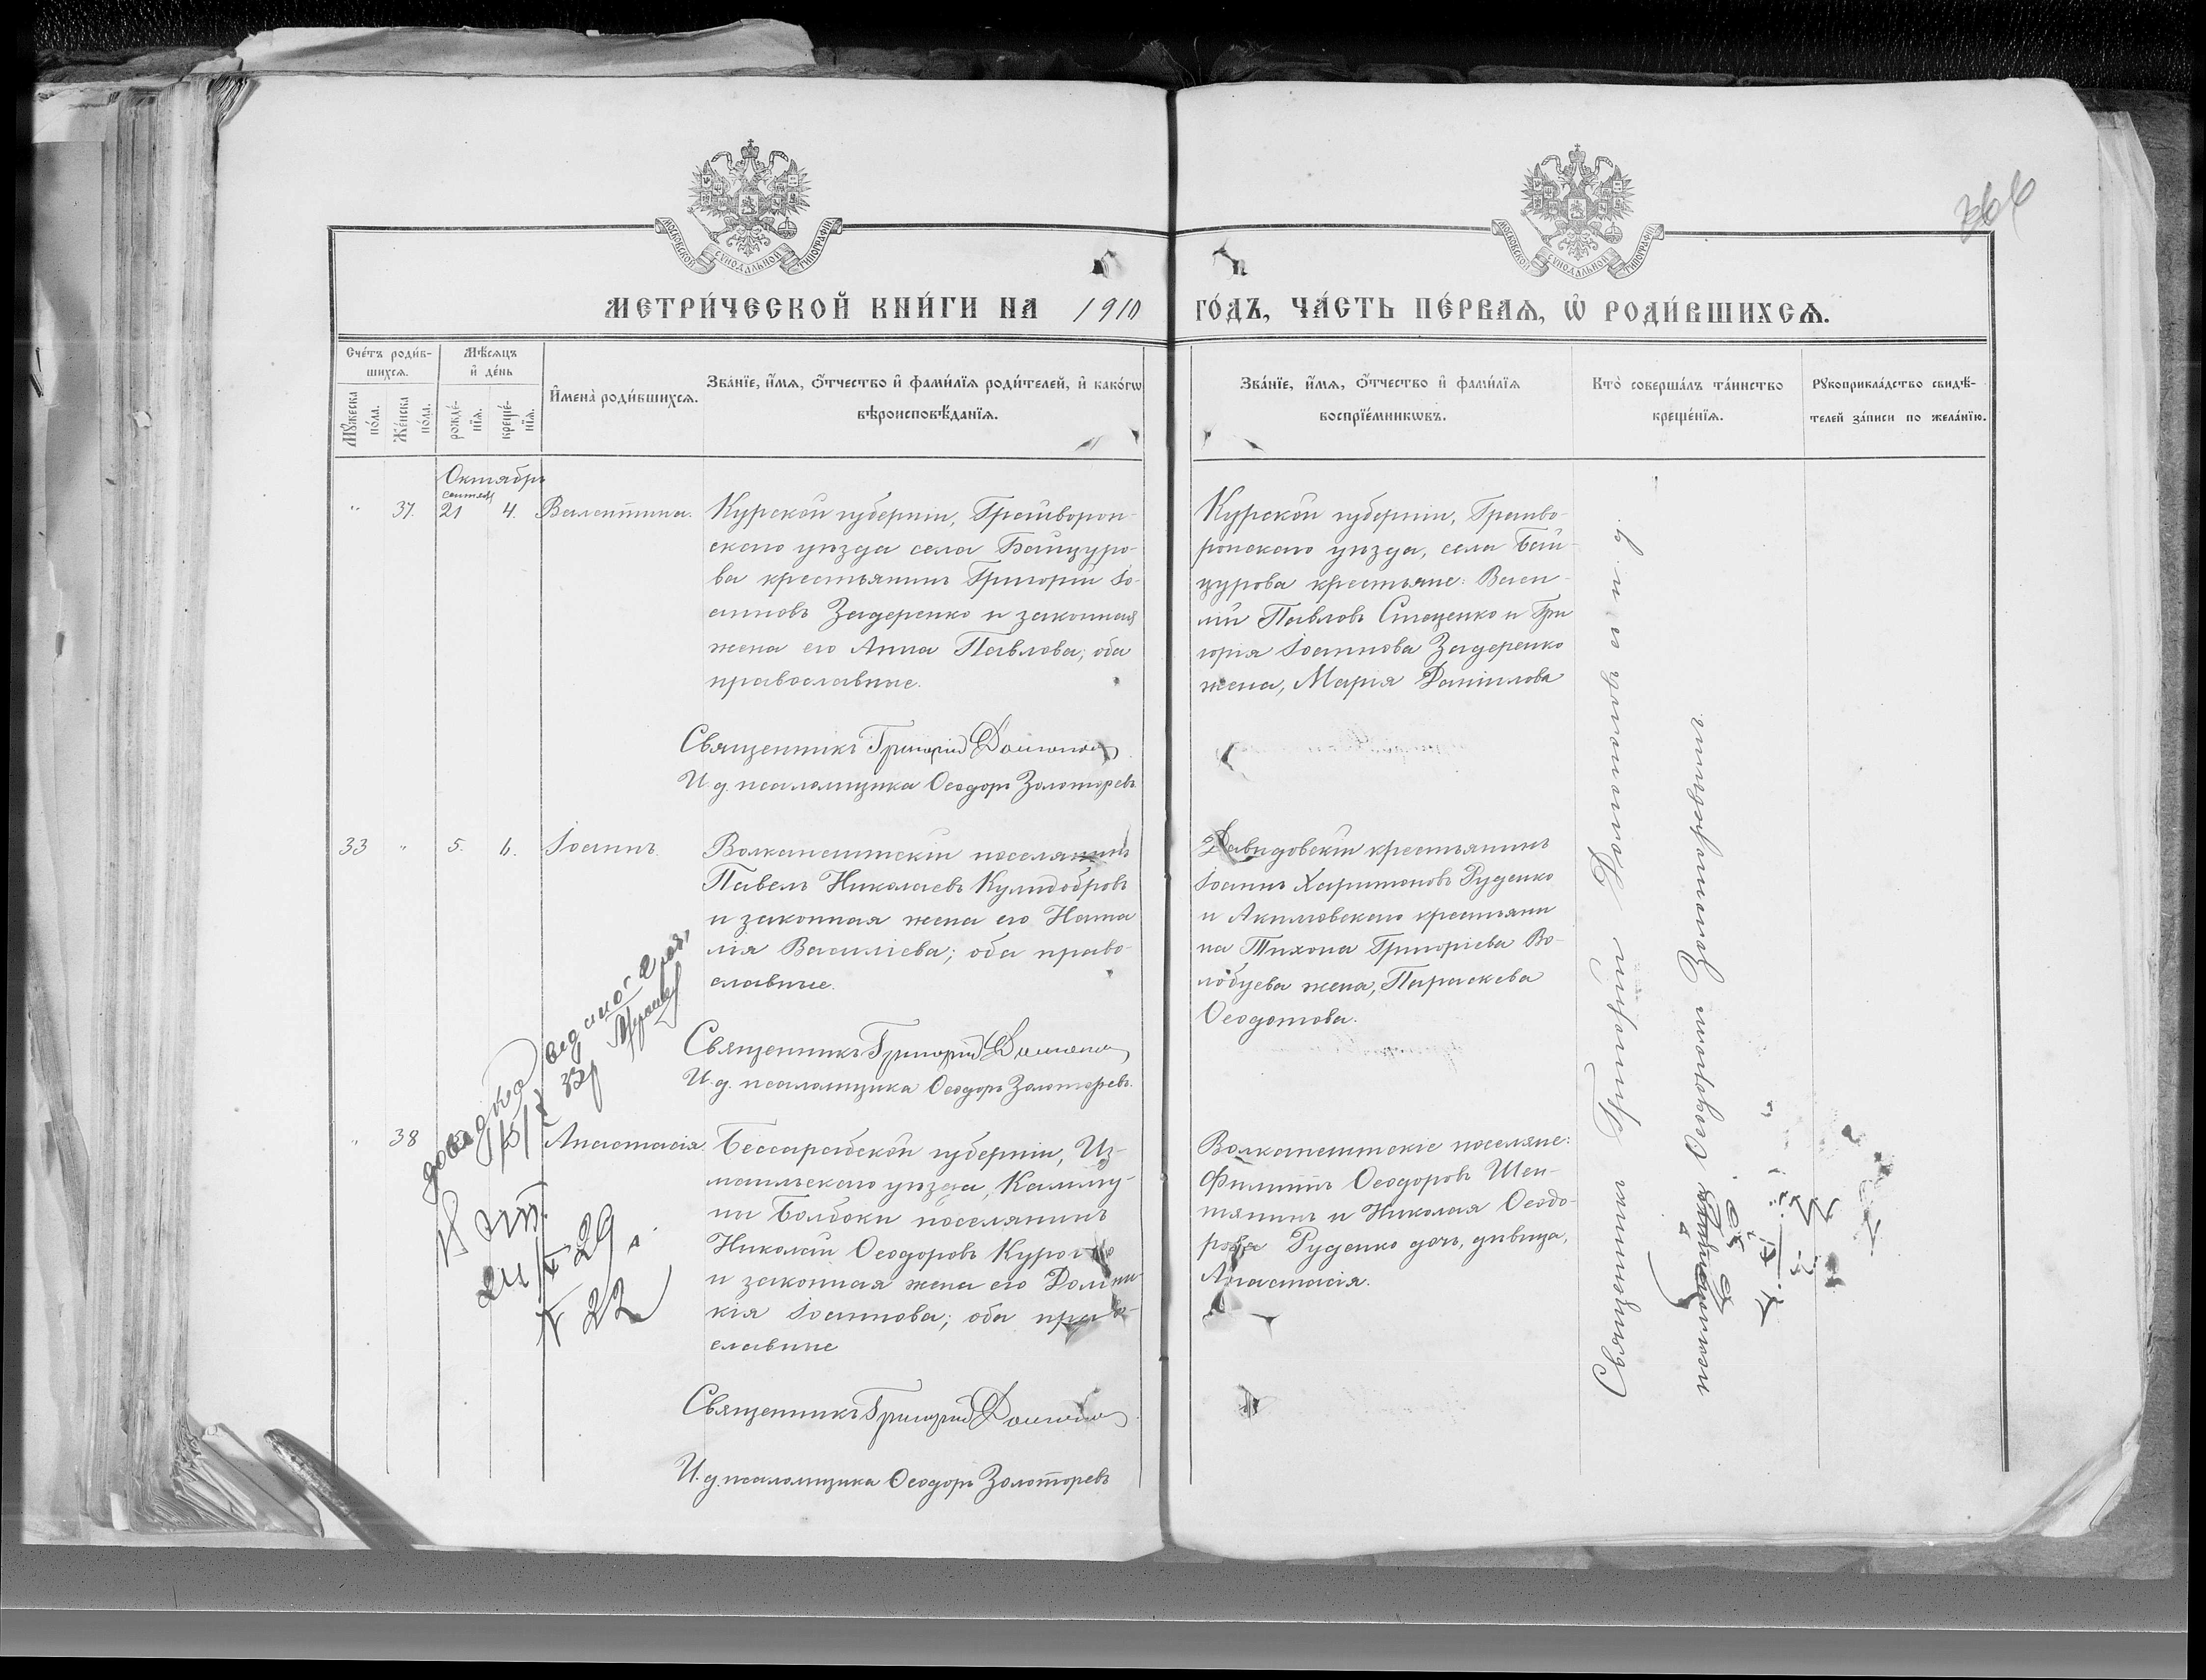 МОСКОВСКОЙ СѴНОДАЛЬНОЙ ТИПОГРАФІИ
МОСКОВСКОЙ СѴНОДАЛЬНОЙ ТИПОГРАФІИ
МЕТРИ́ЧЕСКОЙ КНИ́ГИ НА 1910 ГО́ДЪ, ЧА́СТЬ ПЕ́РВАѦ, Ѡ҆ РОДИ́ВШИХСѦ.
Сче́тъ роди́в-
шихсѧ.
Мꙋ́жеска
по́ла.
Же́нска
по́ла.
Мѣ́сѧцъ
и҆ де́нь
рожде́-
нїѧ.
креще́-
нїѧ.
И҆мена̀ роди́вшихсѧ.
Зва́нїе, и҆́мѧ, ѻ҆́тчество и҆ фами́лїѧ роди́телей, и҆ како́гѡ
вѣроисповѣ́данїѧ.
Зва́нїе, и҆́мѧ, ѻ҆́тчество и҆ фами́лїѧ
воспрїе́мникѡвъ.
Кто̀ соверша́лъ та́инство
креще́нїѧ.
Рꙋкоприкла́дство свидѣ́-
телей за́писи по жела́нїю.
Октябрь
" 37. 21 4. Валентина.
Курской губерніи, Грайворон-
скаго уѣзда села Байцуро-
ва крестьянинъ Григорій Іо-
анновъ Задеренко и законная
жена его Анна Павлова; оба
православные.
Священникъ Григорій
И. д. псаломщика Ѳеодоръ Золоторевъ
Курской губерніи, Грайво-
ронскаго уѣзда, села Бай-
цурова крестьяне: Васи-
лій Павловъ Стаценко и Гри
горія Іоаннова Задеренко
жена, Марія Даніилова
33 " 5. 6. Іоаннъ
Волканештскій поселянинъ
Павелъ Николаевъ Кулидобровъ
и законная жена его Ната
лія Василіева; оба право-
славные.
Священникъ Григорій
И. д. псаломщика Ѳеодоръ Золоторевъ.
Давидовскій крестьянинъ
Іоаннъ Харитоновъ Руденко
и Акимовскаго крестьяни
на Тихона Григоріева Во-
лобуева жена, Параскева
Ѳеодотова.
" 38 Анастасія.
Бессарабской губерніи, Из-
маильскаго уѣзда,
Болбоки поселянинъ
Николай Ѳеодоровъ
и законная жена его Домни
кія Іоаннова; оба право-
славные
Священникъ Григорій
И. д. псаломщика Ѳеодоръ Золоторевъ
Волканештскіе поселяне:
Филиппъ Ѳеодоровъ Шен-
тянинъ и Николая Ѳеодо-
рова Руденко дочь, дѣвица,
Анастасія.
Священникъ Григорій
псаломщикъ Ѳеодоръ Золоторевымъ